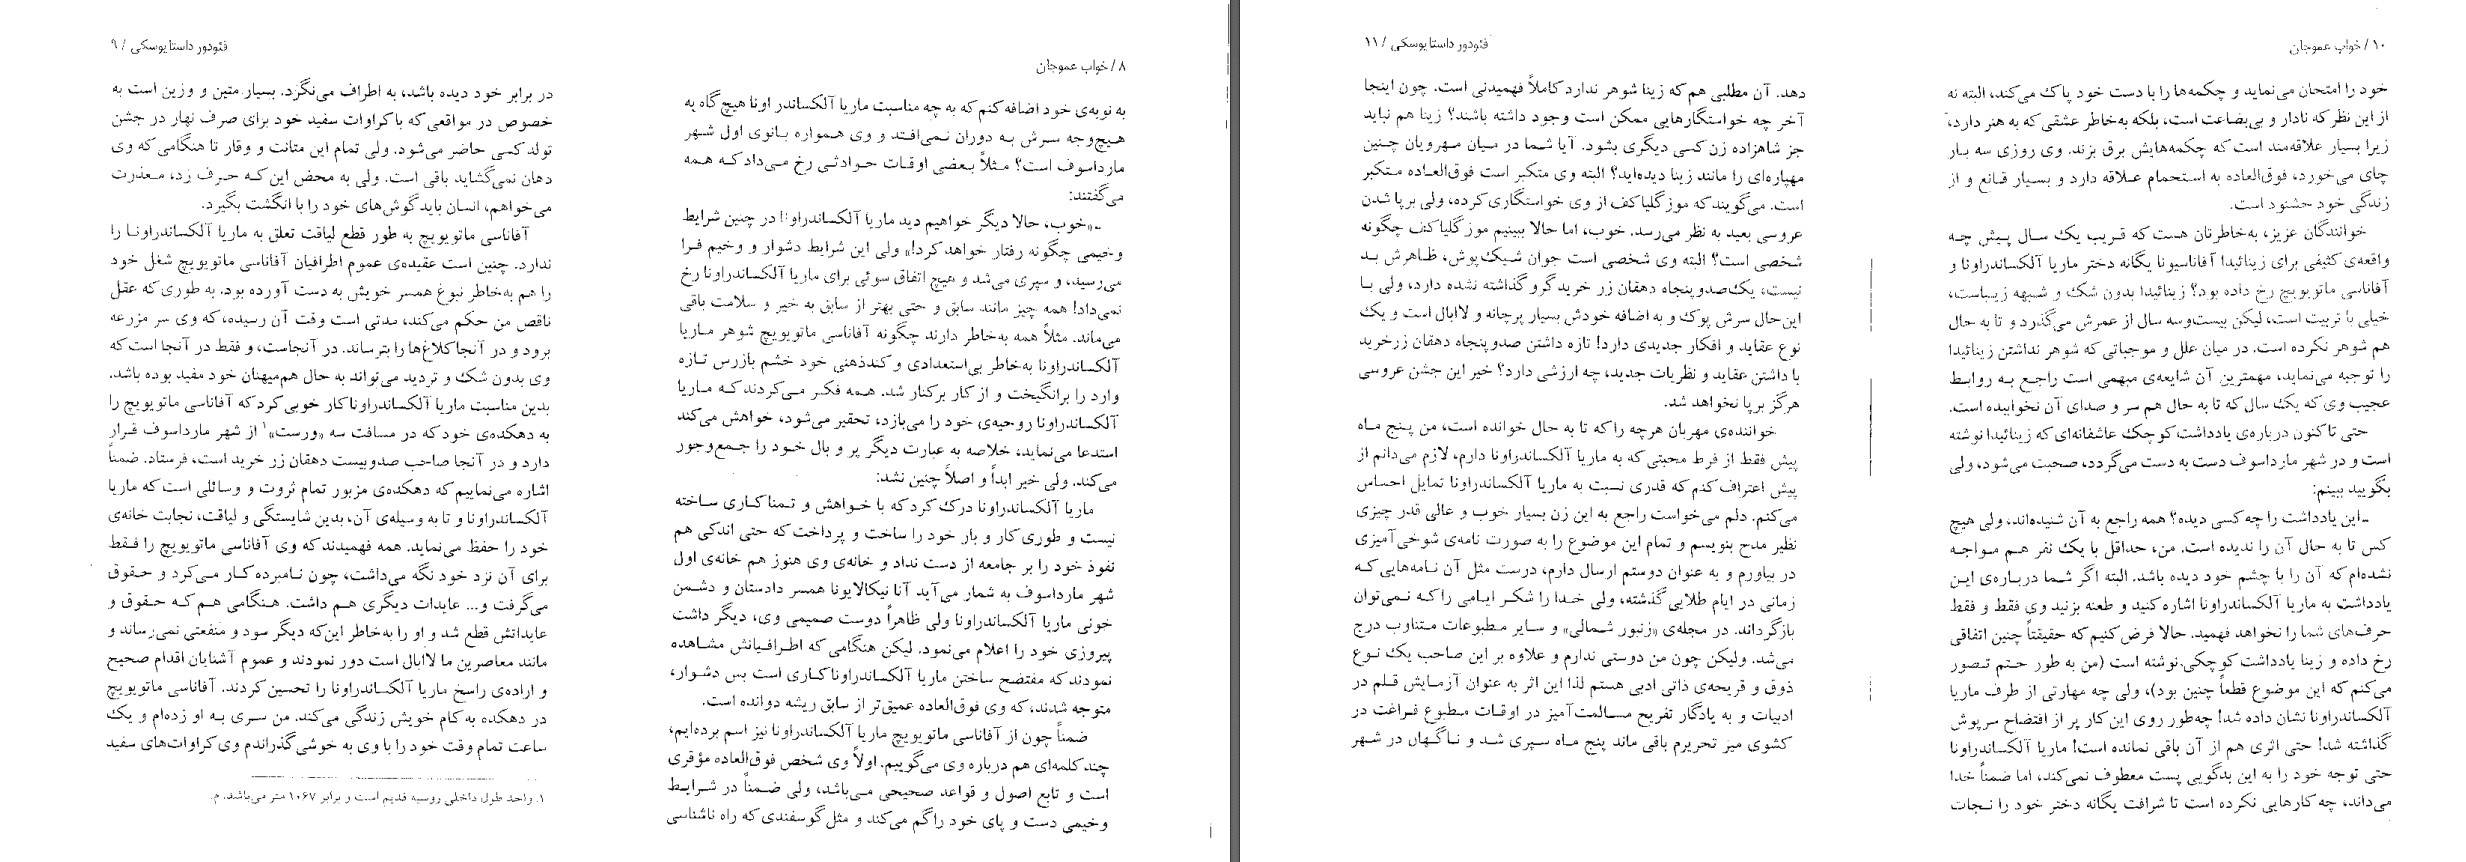 ۸ / خواب عموجان
به نوبه‌ی خود اضافه کنم که به چه مناسبت ماریا آلکساندر اونا هیچ گاه به
هیچ‌وجه سرش به دوران نمی‌افتد و وی همواره بانوی اول شهر
مارداسوف است؟ مثلاً بعضی اوقات حوادثی رخ می‌داد که همه
می‌گفتند:
ـ«خوب، حالا دیگر خواهیم دید ماریا آلکساندراونا در چنین شرایط
وخیمی چگونه رفتار خواهد کرد!» ولی این شرایط دشوار و وخیم فرا
می‌رسید، و سپری می‌شد و هیچ اتفاق سوئی برای ماریا آلکساندراونا رخ
نمی‌داد! همه چیز مانند سابق و حتی بهتر از سابق به خیر و سلامت باقی
می‌ماند. مثلاً همه به‌خاطر دارند چگونه آفاناسی ماتویویچ شوهر ماریا
آلکساندراونا به‌خاطر بی‌استعدادی و کندذهنی خود خشم بازرس تازه
وارد را برانگیخت و از کار برکنار شد. همه فکر می‌کردند که ماریا
آلکساندراونا روحیه‌ی خود را می‌بازد، تحقیر می‌شود، خواهش می‌کند
استدعا می‌نماید، خلاصه به عبارت دیگر پر و بال خود را جمع‌وجور
می‌کند. ولی خیر ابداً و اصلاً چنین نشد:
ماریا آلکساندراونا درک کرد که با خواهش و تمنا کاری ساخته
نیست و طوری کار و بار خود را ساخت و پرداخت که حتی اندکی هم
نفوذ خود را بر جامعه از دست نداد و خانه‌ی وی هنوز هم خانه‌ی اول
شهر مارداسوف به شمار می‌آید آنا نیکالایونا همسر دادستان و دشمن
خونی ماریا آلکساندراونا ولی ظاهراً دوست صمیمی وی، دیگر داشت
پیروزی خود را اعلام می‌نمود. لیکن هنگامی که اطرافیانش مشاهده
نمودند که مفتضح ساختن ماریا آلکساندراونا کاری است بس دشوار،
متوجه شدند، که وی فوق‌العاده عمیق‌تر از سابق ریشه دوانده است.
ضمناً چون از آفاناسی ماتویویچ ماریا آلکساندراونا نیز اسم برده‌ایم،
چند کلمه‌ای هم درباره وی می‌گوییم. اولاً وی شخص فوق‌العاده مؤقری
است و تابع اصول و قواعد صحیحی می‌باشد، ولی ضمناً در شرایط
وخیمی دست و پای خود را گم می‌کند و مثل گوسفندی که راه ناشناسی
فئودور داستایوسکی / ۹
در برابر خود دیده باشد، به اطراف می‌نگرد. بسیار متین و وزین است به
خصوص در مواقعی که با کراوات سفید خود برای صرف نهار در جشن
تولد کسی حاضر می‌شود. ولی تمام این متانت و وقار تا هنگامی که وی
دهان نمی‌گشاید باقی است. ولی به محض این که حرف زد، معذرت
می‌خواهم، انسان باید گوش‌های خود را با انگشت بگیرد.
آفاناسی ماتویویچ به طور قطع لیاقت تعلق به ماریا آلکساندراونا را
ندارد. چنین است عقیده‌ی عموم اطرافیان آفاناسی ماتویویچ شغل خود
را هم به‌خاطر نبوغ همسر خویش به دست آورده بود. به طوری که عقل
ناقص من حکم می‌کند، مدتی است وقت آن رسیده، که وی سر مزرعه
برود و در آنجا کلاغ‌ها را بترساند. در آنجاست، و فقط در آنجا است که
وی بدون شک و تردید می‌تواند به حال هم‌میهنان خود مفید بوده باشد.
بدین مناسبت ماریا آلکساندراونا کار خوبی کرد که آفاناسی ماتویویچ را
به دهکده‌ی خود که در مسافت سه «ورست»۱ از شهر مارداسوف قرار
دارد و در آنجا صاحب صدوبیست دهقان زر خرید است، فرستاد. ضمناً
اشاره می‌نماییم که دهکده‌ی مزبور تمام ثروت و وسائلی است که ماریا
آلکساندراونا و تا به وسیله‌ی آن، بدین شایستگی و لیاقت، نجابت خانه‌ی
خود را حفظ می‌نماید. همه فهمیدند که وی آفاناسی ماتویویچ را فقط
برای آن نزد خود نگه می‌داشت، چون نامبرده کار می‌کرد و حقوق
می‌گرفت و... عایدات دیگری هم داشت. هنگامی هم که حقوق و
عایداتش قطع شد و او را به‌خاطر این‌که دیگر سود و منفعتی نمی‌رساند و
مانند معاصرین ما لاابال است دور نمودند و عموم آشنایان اقدام صحیح
و اراده‌ی راسخ ماریا آلکساندراونا را تحسین کردند. آفاناسی ماتویویچ
در دهکده به کام خویش زندگی می‌کند. من سری به او زده‌ام و یک
ساعت تمام وقت خود را با وی به خوشی گذراندم وی کراوات‌های سفید
۱. واحد طول داخلی روسیه قدیم است و برابر ۱۰۶۷ متر می‌باشد. م.
۱۰ / خواب عموجان
خود را امتحان می‌نماید و چکمه‌ها را با دست خود پاک می‌کند، البته نه
از این نظر که نادار و بی‌بضاعت است، بلکه به‌خاطر عشقی که به هنر دارد،
زیرا بسیار علاقه‌مند است که چکمه‌هایش برق بزند. وی روزی سه بار
چای می‌خورد، فوق‌العاده به استحمام علاقه دارد و بسیار قانع و از
زندگی خود خشنود است.
خوانندگان عزیز، به‌خاطرتان هست که قریب یک سال پیش چه
واقعه‌ی کثیفی برای زینائیدا آفاناسیونا یگانه دختر ماریا آلکساندراونا و
آفاناسی ماتویویچ رخ داده بود؟ زینائیدا بدون شک و شبهه زیباست،
خیلی با تربیت است، لیکن بیست‌وسه سال از عمرش می‌گذرد و تا به حال
هم شوهر نکرده است. در میان علل و موجباتی که شوهر نداشتن زینائیدا
را توجیه می‌نماید، مهمترین آن شایعه‌ی مبهمی است راجع به روابط
عجیب وی که یک سال که تا به حال هم سر و صدای آن نخوابیده است.
حتی تاکنون درباره‌ی یادداشت کوچک عاشقانه‌ای که زینائیدا نوشته
است و در شهر مارداسوف دست به دست می‌گردد، صحبت می‌شود، ولی
بگویید ببینم:
ـ این یادداشت را چه کسی دیده؟ همه راجع به آن شنیده‌اند، ولی هیچ
کس تا به حال آن را ندیده است. من، حداقل با یک نفر هم مواجه
نشده‌ام که آن را با چشم خود دیده باشد. البته اگر شما درباره‌ی این
یادداشت به ماریا آلکساندراونا اشاره کنید و طعنه بزنید وی فقط و فقط
حرف‌های شما را نخواهد فهمید. حالا فرض کنیم که حقیقتاً چنین اتفاقی
رخ داده و زینا یادداشت کوچکی نوشته است (من به طور حتم تصور
می‌کنم که این موضوع قطعاً چنین بود)، ولی چه مهارتی از طرف ماریا
آلکساندراونا نشان داده شد! چه‌طور روی این کار پر از افتضاح سرپوش
گذاشته شد! حتی اثری هم از آن باقی نمانده است! ماریا آلکساندراونا
حتی توجه خود را به این بدگویی پست معطوف نمی‌کند، اما ضمناً خدا
می‌داند، چه کارهایی نکرده است تا شرافت یگانه دختر خود را نجات
فئودور داستایوسکی / ۱۱
دهد. آن مطلبی هم که زینا شوهر ندارد کاملاً فهمیدنی است. چون اینجا
آخر چه خواستگارهایی ممکن است وجود داشته باشند؟ زینا هم نباید
جز شاهزاده زن کسی دیگری بشود. آیا شما در میان مهرویان چنین
مهپاره‌ای را مانند زینا دیده‌اید؟ البته وی متکبر است فوق‌العاده متکبر
است. می‌گویند که موزگلیاکف از وی خواستگاری کرده، ولی برپا شدن
عروسی بعید به نظر می‌رسد. خوب، اما حالا ببینیم موزگلیاکف چگونه
شخصی است؟ البته وی شخصی است جوان شیک‌پوش، ظاهرش بد
نیست، یک‌صدوپنجاه دهقان زر خرید گرو گذاشته نشده دارد، ولی با
این‌حال سرش پوک و به اضافه خودش بسیار پرچانه و لاابال است و یک
نوع عقاید و افکار جدیدی دارد! تازه داشتن صدوپنجاه دهقان زرخرید
با داشتن عقاید و نظریات جدید، چه ارزشی دارد؟ خیر این جشن عروسی
هرگز برپا نخواهد شد.
خواننده‌ی مهربان هرچه را که تا به حال خوانده است، من پنج ماه
پیش فقط از فرط محبتی که به ماریا آلکساندراونا دارم، لازم می‌دانم از
پیش اعتراف کنم که قدری نسبت به ماریا آلکساندراونا تمایل احساس
می‌کنم. دلم می‌خواست راجع به این زن بسیار خوب و عالی قدر چیزی
نظیر مدح بنویسم و تمام این موضوع را به صورت نامه‌ی شوخی‌آمیزی
در بیاورم و به عنوان دوستم ارسال دارم، درست مثل آن نامه‌هایی که
زمانی در ایام طلایی گذشته، ولی خدا را شکر ایامی را که نمی‌توان
بازگرداند. در مجله‌ی «زنبور شمالی» و سایر مطبوعات متناوب درج
می‌شد. ولیکن چون من دوستی ندارم و علاوه بر این صاحب یک نوع
ذوق و قریحه‌ی ذاتی ادبی هستم لذا این اثر به عنوان آزمایش قلم در
ادبیات و به یادگار تفریح مسالمت‌آمیز در اوقات مطبوع فراغت در
کشوی میز تحریرم باقی ماند پنج ماه سپری شد و ناگهان در شهر